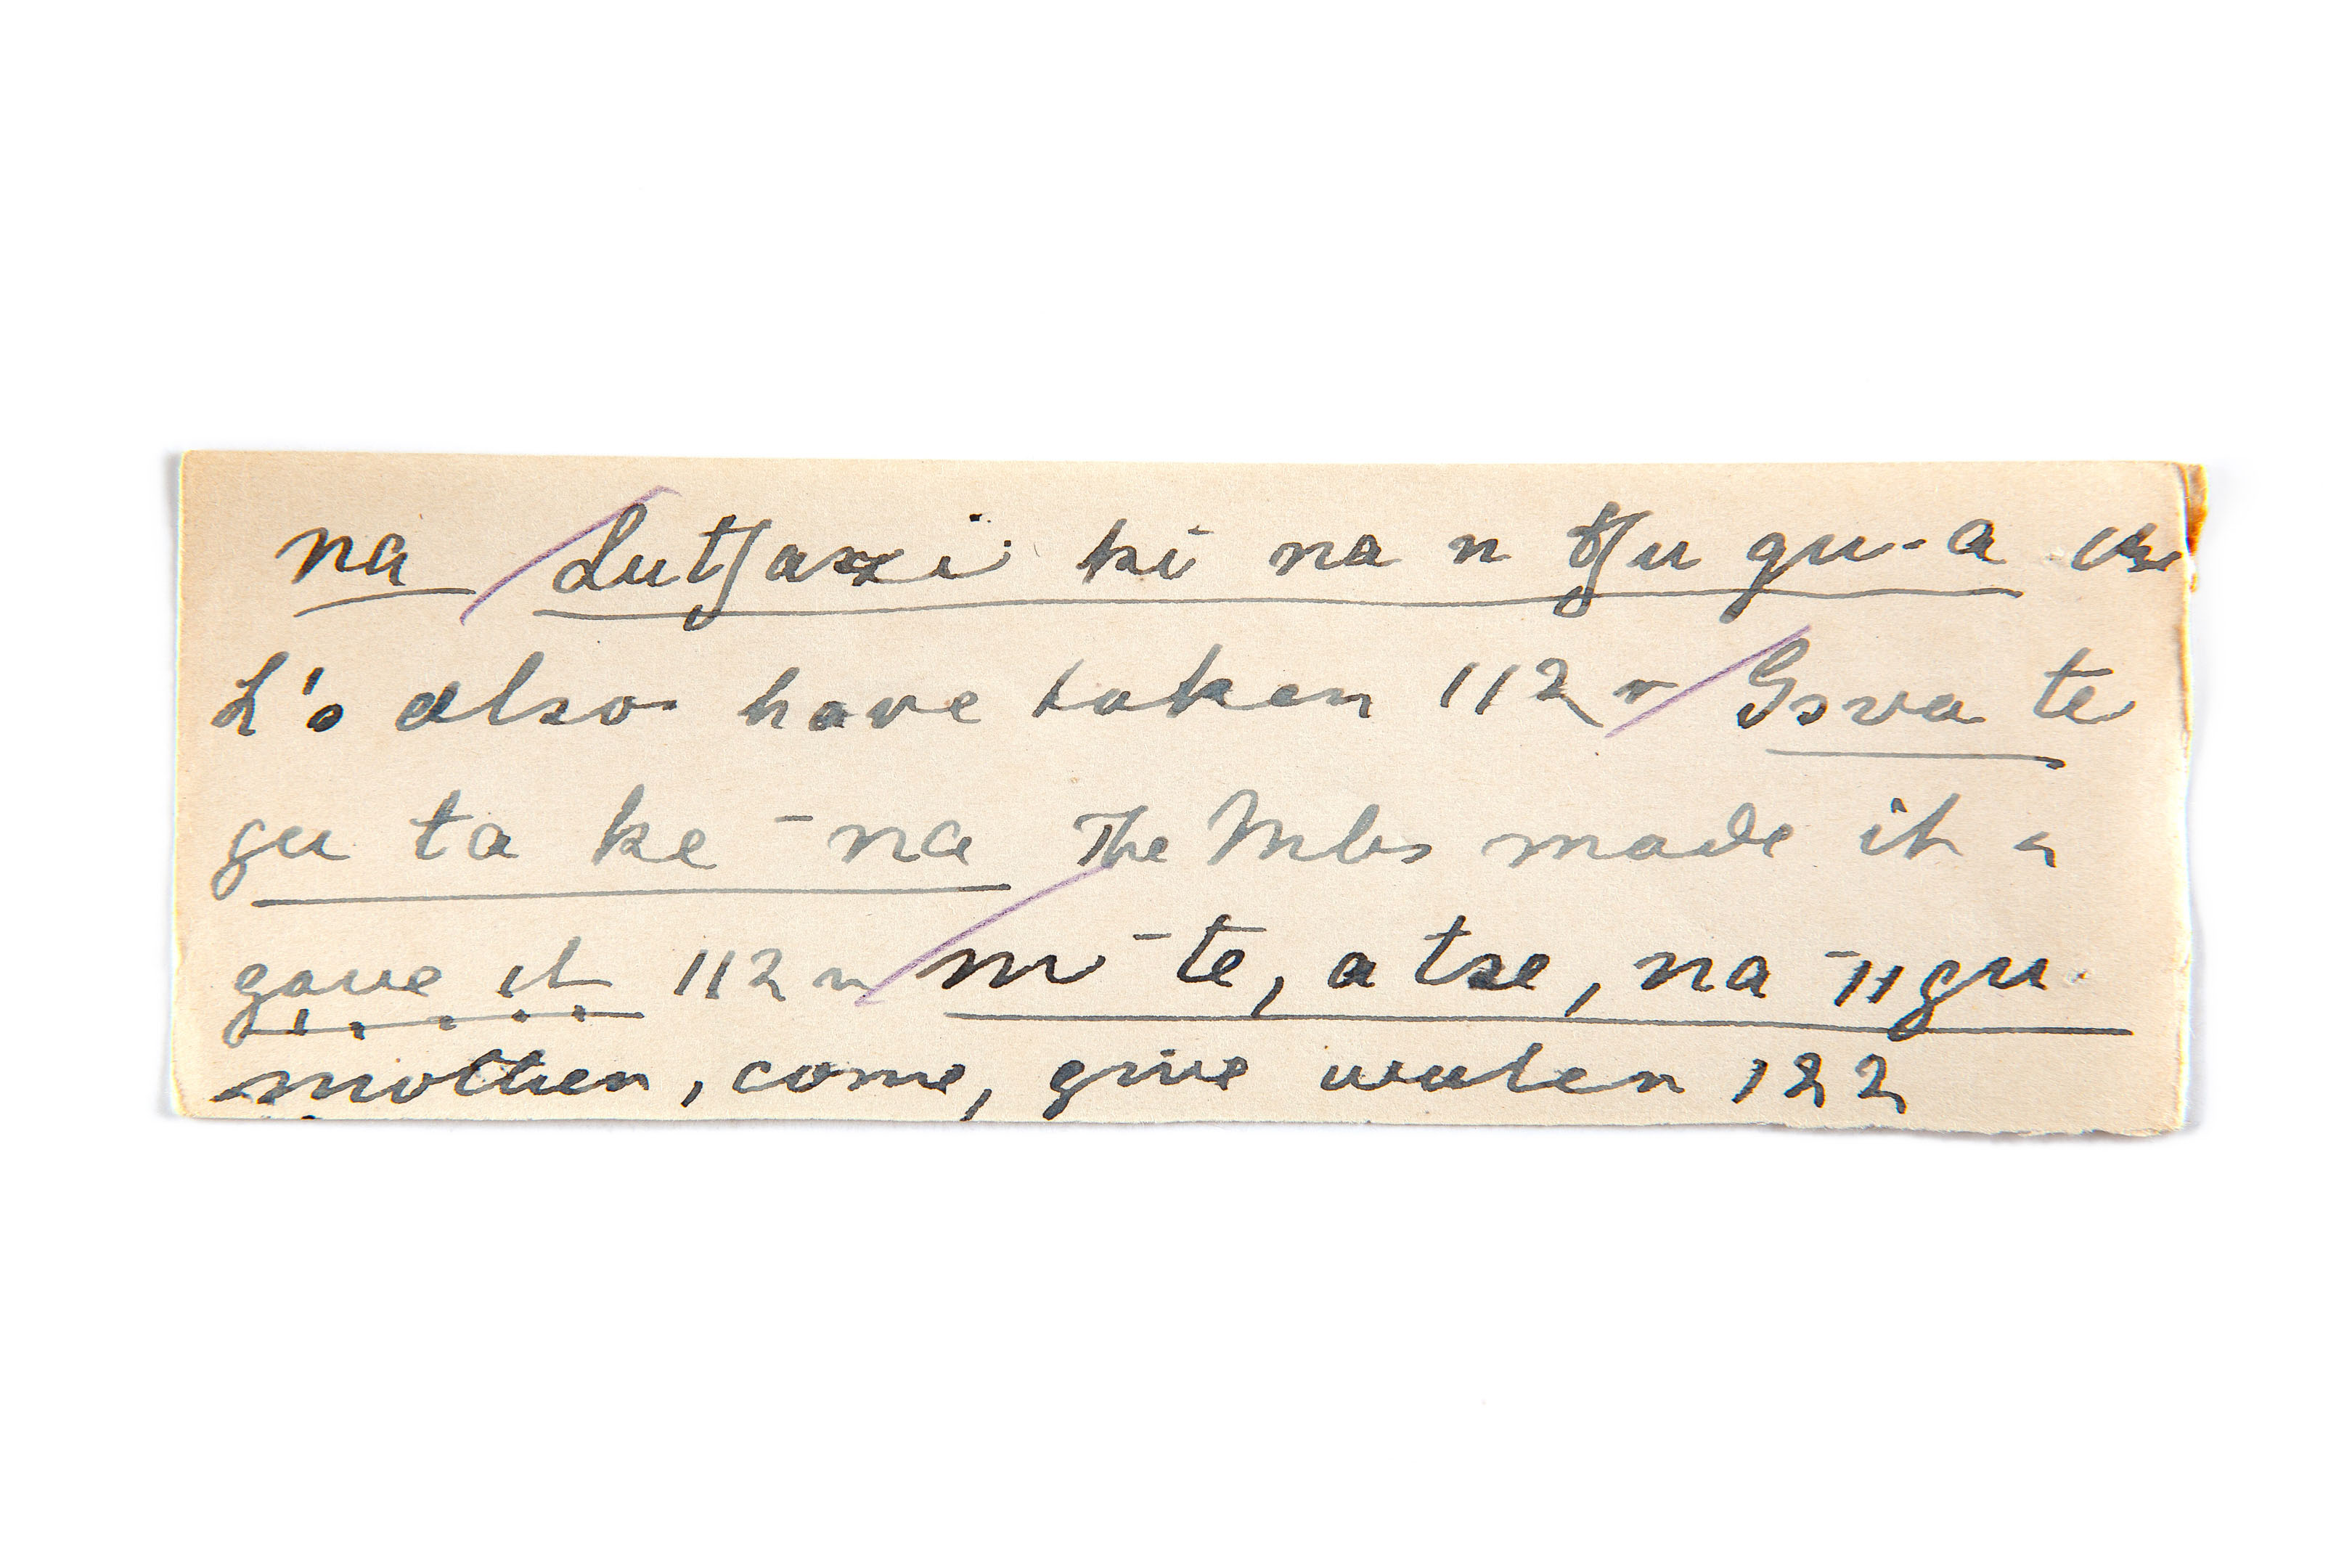 na / Lutʃazi ki na n tʃu gu-a the
L's also have taken 112 r / Gova te
gu ta ke - na The Mbs made it &
gave it 112 r / m - te, a tse, na - ŋgu
mother, come, give water 122